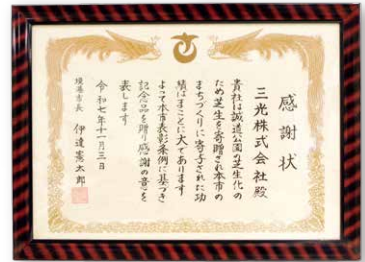 感謝状
三光株式会社殿
貴社は誠道公園の芝生化の
ため芝生を寄贈され本市の
まちづくりに寄与された功
績はまことに大であります
よって本市表彰条例に基づき
記念品を贈り感謝の意を
表します
令和七年十一月三日
境港市長 伊達憲太郎